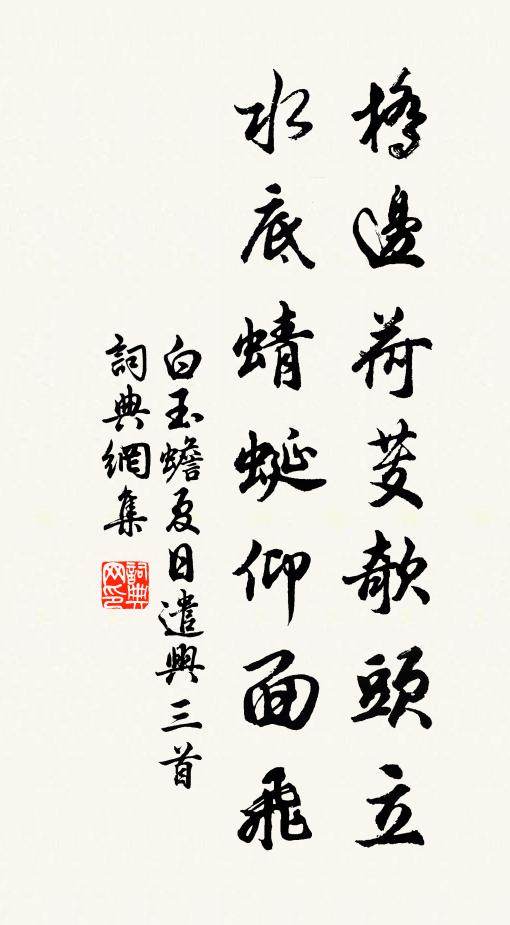 橋邊荷芰欹頭立
水底蜻蜓仰面飛
白玉蟾夏日遣興三首
詞典網集
詞典网印